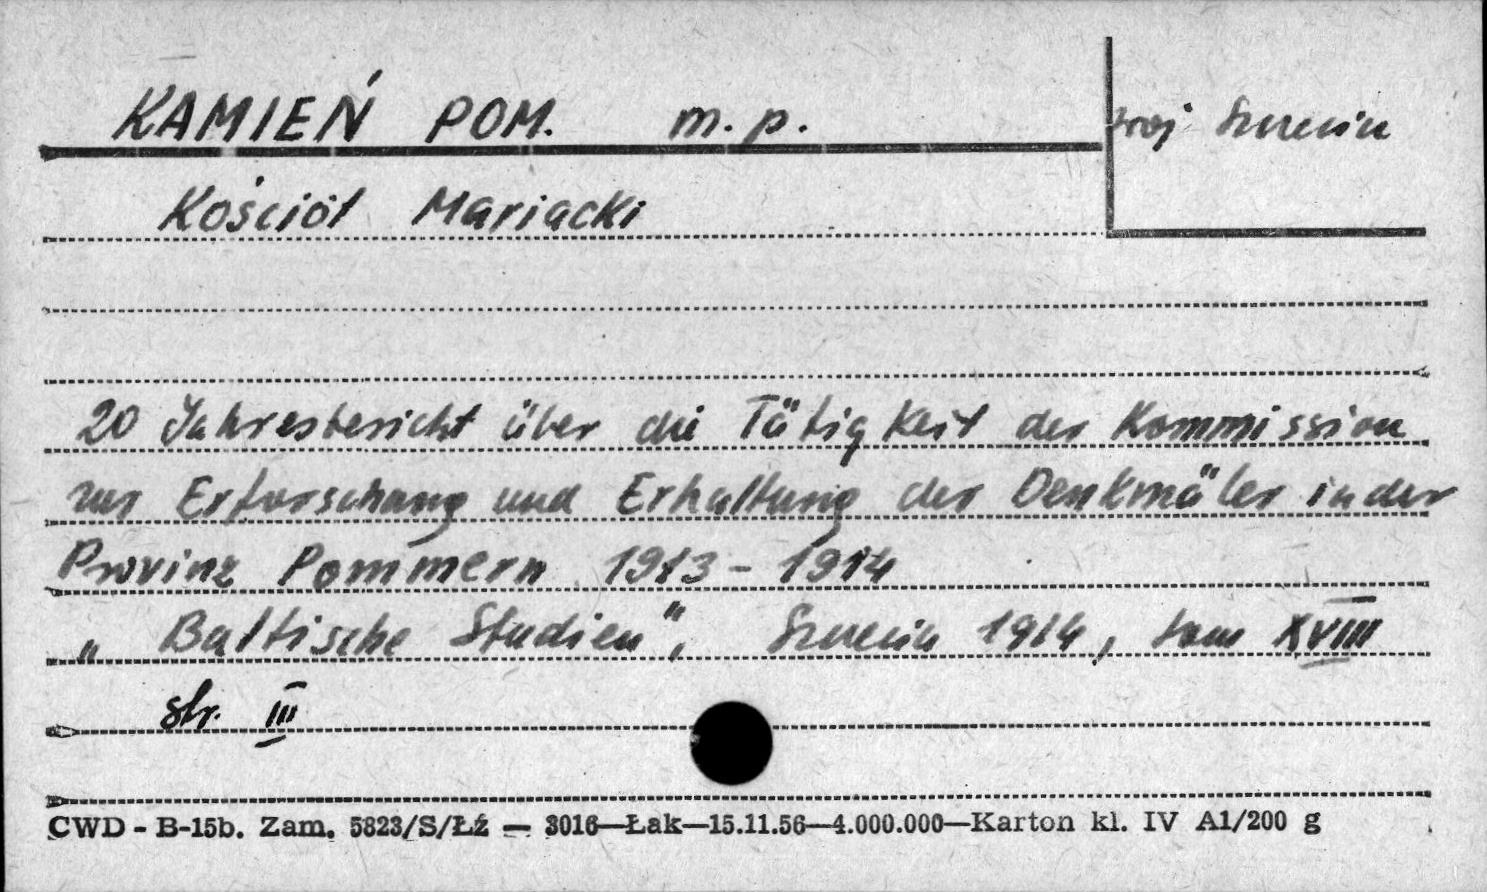 KAMIEŃ POM. m. p.
woj Szczecin
Kościół Mariacki
20 Jahresbericht über die Tätigkeit der Kommission
zur Erforschung und Erhaltung der Denkmäler in der
Provinz Pommern 1913 - 1914
„ Baltische Studien", Szczecin 1914, tom XVIII
str. III
CWD - B-15b. Zam. 5823/S/Łź — 3016—Łak—15.11.56—4.000.000—Karton kl. IV A1/200 g